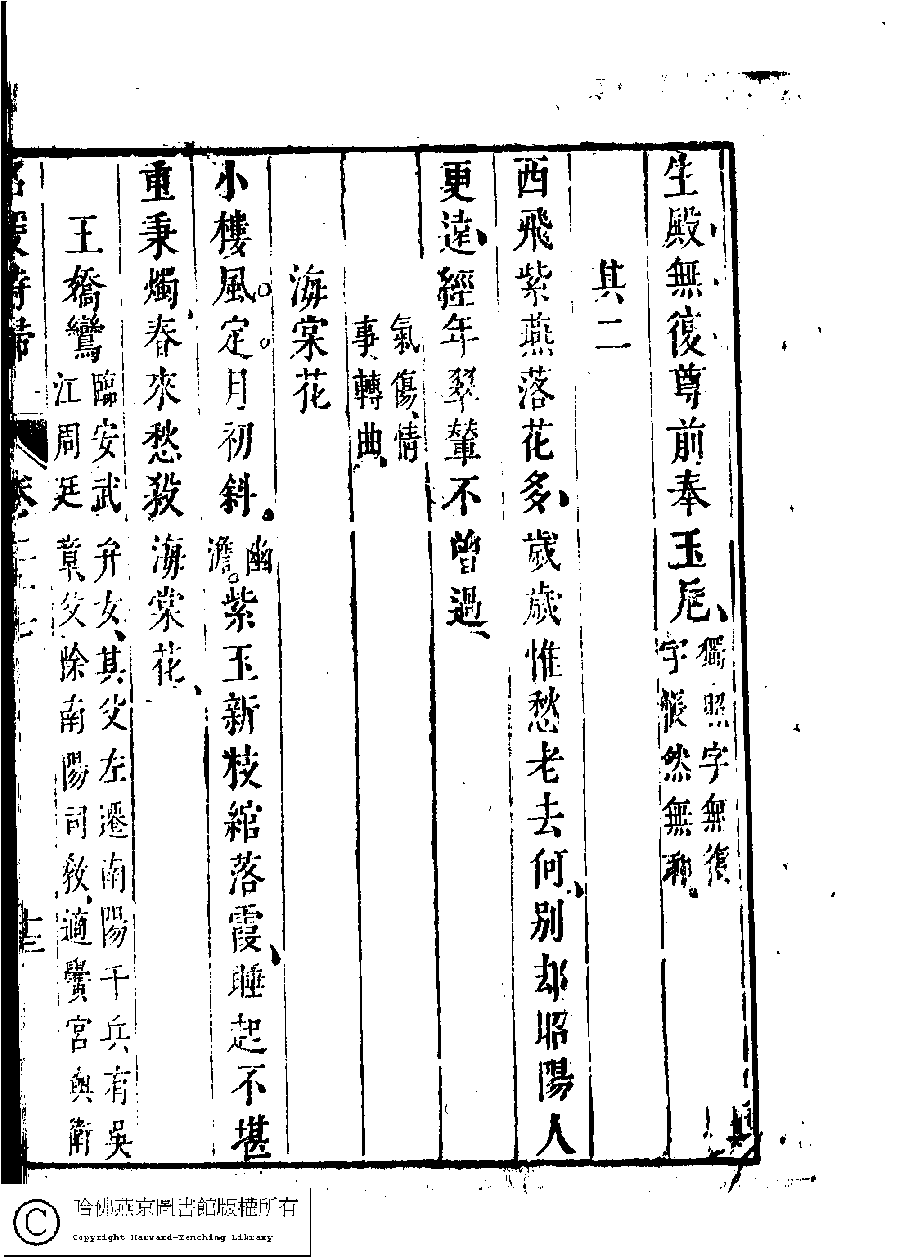 生殿無復尊前奉玉巵、獨照字無復
字悵然無聊。
其二
西飛紫燕落花多、歲歲惟愁老去何、別却昭陽人
更遠、經年翠輦不曾過、
氣傷、情
事轉曲、
海棠花
小樓風定月初斜。幽
澹。紫玉新枝綰落霞、睡起不堪
重秉燭、春來愁殺海棠花、
王嬌鸞臨安武弁女、其父左遷南陽千兵有吳
江周廷章父除南陽司教、適黌宮與衛
名媛詩歸
卷二十七
十三
哈佛燕京圖書館版權所有
Copyright Harvard-Yenching Library